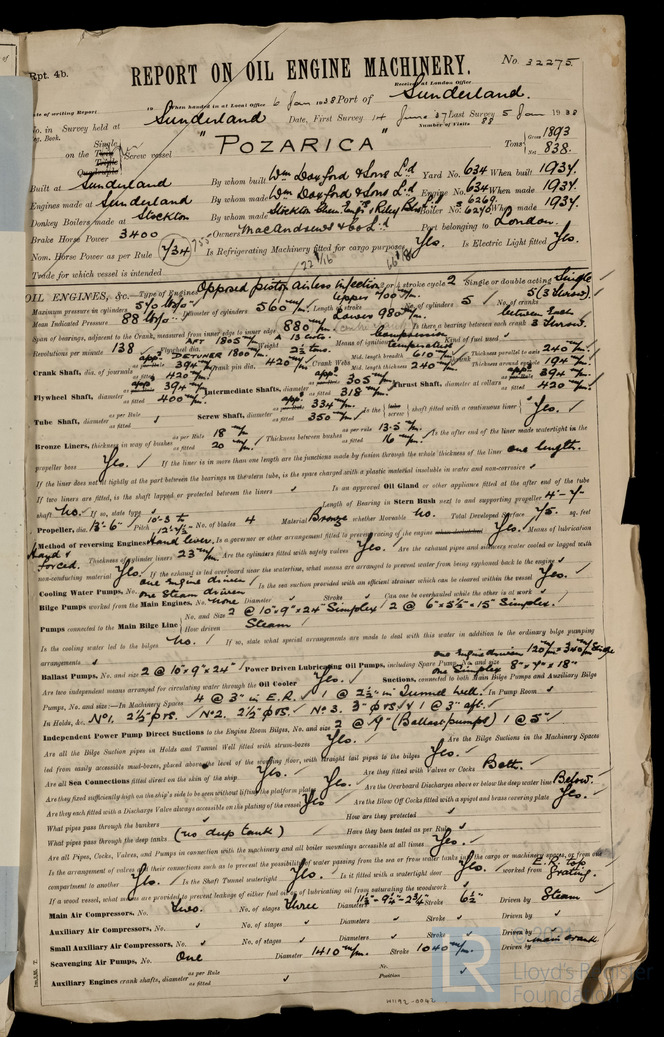 Rpt. 4b.
REPORT ON OIL ENGINE MACHINERY.
No. 32275.
Received at London Office
Date of writing Report 19 When handed in at Local Office 6 Jan 1938 Port of Sunderland.
No. in Survey held at Sunderland Date, First Survey 14 June '37 Last Survey 5 Jan 1938
Reg. Book. Number of Visits 88
Single
on the Twin Screw vessel "POZARICA" Tons Gross 1893 Net 838
Triple
Quadruple
Built at Sunderland By whom built Wm Doxford & Sons Ld Yard No. 634 When built 1937.
Engines made at Sunderland By whom made Wm Doxford & Sons Ld Engine No. 634 When made 1937.
Donkey Boilers made at Stockton By whom made Boiler No. 6269 6270 When made 1937.
Brake Horse Power 3400 Owners MacAndrews & Co Ld Port belonging to London.
Nom. Horse Power as per Rule 734 755 Is Refrigerating Machinery fitted for cargo purposes Yes. Is Electric Light fitted Yes.
Trade for which vessel is intended
OIL ENGINES, &c. Type of Engines Opposed piston airless injection 2 or 4 stroke cycle 2 Single or double acting Single
Maximum pressure in cylinders 570 lbs/o" Diameter of cylinders 560 m/m. Length of stroke Upper 400 m/m. Lower 980 m/m. No. of cylinders 5 No. of cranks 5 (3 throws)
Mean Indicated Pressure 88 lbs/o"
Span of bearings, adjacent to the Crank, measured from inner edge to inner edge 880 m/m. Is there a bearing between each crank between each 3 throws.
Revolutions per minute 138 Flywheel dia. AFT 1805 m/m DETUNER 1800 m/m. Weight 13 tons 2½ tons. Means of ignition Compression Kind of fuel used
Crank Shaft, dia. of journals app? 394 m/m. as fitted 420 m/m. Crank pin dia. 420 m/m. Crank Webs Mid. length breadth 610 m/m. Mid. length thickness 240 m/m. Thickness parallel to axis 240 m/m. Thickness around eyehole 194 m/m.
Flywheel Shaft, diameter app? 394 m/m. as fitted 400 m/m. Intermediate Shafts, diameter app? 305 m/m. as fitted 318 m/m. Thrust Shaft, diameter at collars app? 394 m/m. as fitted 420 m/m.
Tube Shaft, diameter as per Rule as fitted Screw Shaft, diameter app? 334 m/m. as fitted 350 m/m. Is the tube screw shaft fitted with a continuous liner Yes.
Bronze Liners, thickness in way of bushes as per Rule 18 m/m as fitted 20 m/m. Thickness between bushes as per rule 13.5 m/m. as fitted 16 m/m. Is the after end of the liner made watertight in the
propeller boss Yes. If the liner is in more than one length are the junctions made by fusion through the whole thickness of the liner one length.
If the liner does not fit tightly at the part between the bearings in the stern tube, is the space charged with a plastic material insoluble in water and non-corrosive
If two liners are fitted, is the shaft lapped or protected between the liners Is an approved Oil Gland or other appliance fitted at the after end of the tube
shaft No. If so, state type Length of Bearing in Stern Bush next to and supporting propeller 4'-7"
Propeller, dia. 13'-6" Pitch No. of blades 4 Material Bronze whether Moveable No. Total Developed Surface 75 sq. feet
Method of reversing Engines Hand lever Is a governor or other arrangement fitted to prevent racing of the engine Yes. Means of lubrication
forced. Thickness of cylinder liners 23 m/m. Are the cylinders fitted with safety valves Yes. Are the exhaust pipes and silencers water cooled or lagged with
non-conducting material Yes. If the exhaust is led overboard near the waterline, what means are arranged to prevent water from being syphoned back to the engine
Cooling Water Pumps, No. one Engine driven one Steam driven Is the sea suction provided with an efficient strainer which can be cleared within the vessel Yes.
Bilge Pumps worked from the Main Engines, No. None Diameter Stroke Can one be overhauled while the other is at work
Pumps connected to the Main Bilge Line No. and Size 2 @ 10"×9"×24" Simplex 2 @ 6"×5½"×15" Simplex. How driven Steam
Is the cooling water led to the bilges No. If so, state what special arrangements are made to deal with this water in addition to the ordinary bilge pumping
arrangements
Ballast Pumps, No. and size 2 @ 10"×9"×24" Power Driven Lubricating Oil Pumps, including Spare Pump, No. and size one Engine driven 120 m/m × 340 m/m Single one Simplex 8"×7"×18"
Are two independent means arranged for circulating water through the Oil Cooler Yes. Suctions, connected to both Main Bilge Pumps and Auxiliary Bilge
Pumps, No. and size:—In Machinery Spaces 4 @ 3" in E.R. 1 @ 2½" in Tunnel Well. In Pump Room
In Holds, &c. No1. 2½" P & S. No2. 2½" P & S. No. 3. 3" P & S & 1 @ 3" aft.
Independent Power Pump Direct Suctions to the Engine Room Bilges, No. and size 2 @ 9" (Ballast pumps) 1 @ 5"
Are all the Bilge Suction pipes in Holds and Tunnel Well fitted with strum-boxes Yes. Are the Bilge Suctions in the Machinery Spaces
led from easily accessible mud-boxes, placed above the level of the working floor, with straight tail pipes to the bilges Yes.
Are all Sea Connections fitted direct on the skin of the ship Yes. Are they fitted with Valves or Cocks Both.
Are they fixed sufficiently high on the ship's side to be seen without lifting the platform plates Yes. Are the Overboard Discharges above or below the deep water line Below.
Are they each fitted with a Discharge Valve always accessible on the plating of the vessel Yes Are the Blow Off Cocks fitted with a spigot and brass covering plate Yes.
What pipes pass through the bunkers How are they protected
What pipes pass through the deep tanks (no deep tank) Have they been tested as per Rule
Are all Pipes, Cocks, Valves, and Pumps in connection with the machinery and all boiler mountings accessible at all times Yes.
Is the arrangement of valves and their connections such as to prevent the possibility of water passing from the sea or from water tanks into the cargo or machinery spaces, or from one
compartment to another Yes. Is the Shaft Tunnel watertight Yes. Is it fitted with a watertight door Yes. worked from E.R. top grating.
If a wood vessel, what means are provided to prevent leakage of either fuel oil or of lubricating oil from saturating the woodwork
Main Air Compressors, No. Two. No. of stages Three Diameters 11½"-9½"-2¾" Stroke 6½" Driven by Steam
Auxiliary Air Compressors, No. No. of stages Diameters Stroke Driven by
Small Auxiliary Air Compressors, No. No. of stages Diameters Stroke Driven by
Scavenging Air Pumps, No. One Diameter 1410 m/m. Stroke 1040 m/m. Driven by Main crank.
Auxiliary Engines crank shafts, diameter as per Rule as fitted No. Position
LR
Lloyd's Register
Foundation
W1192-0042